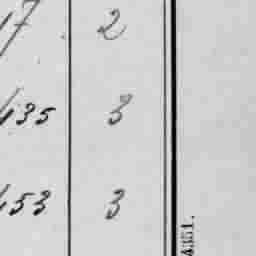 17 2
435 3
453 3
4351.